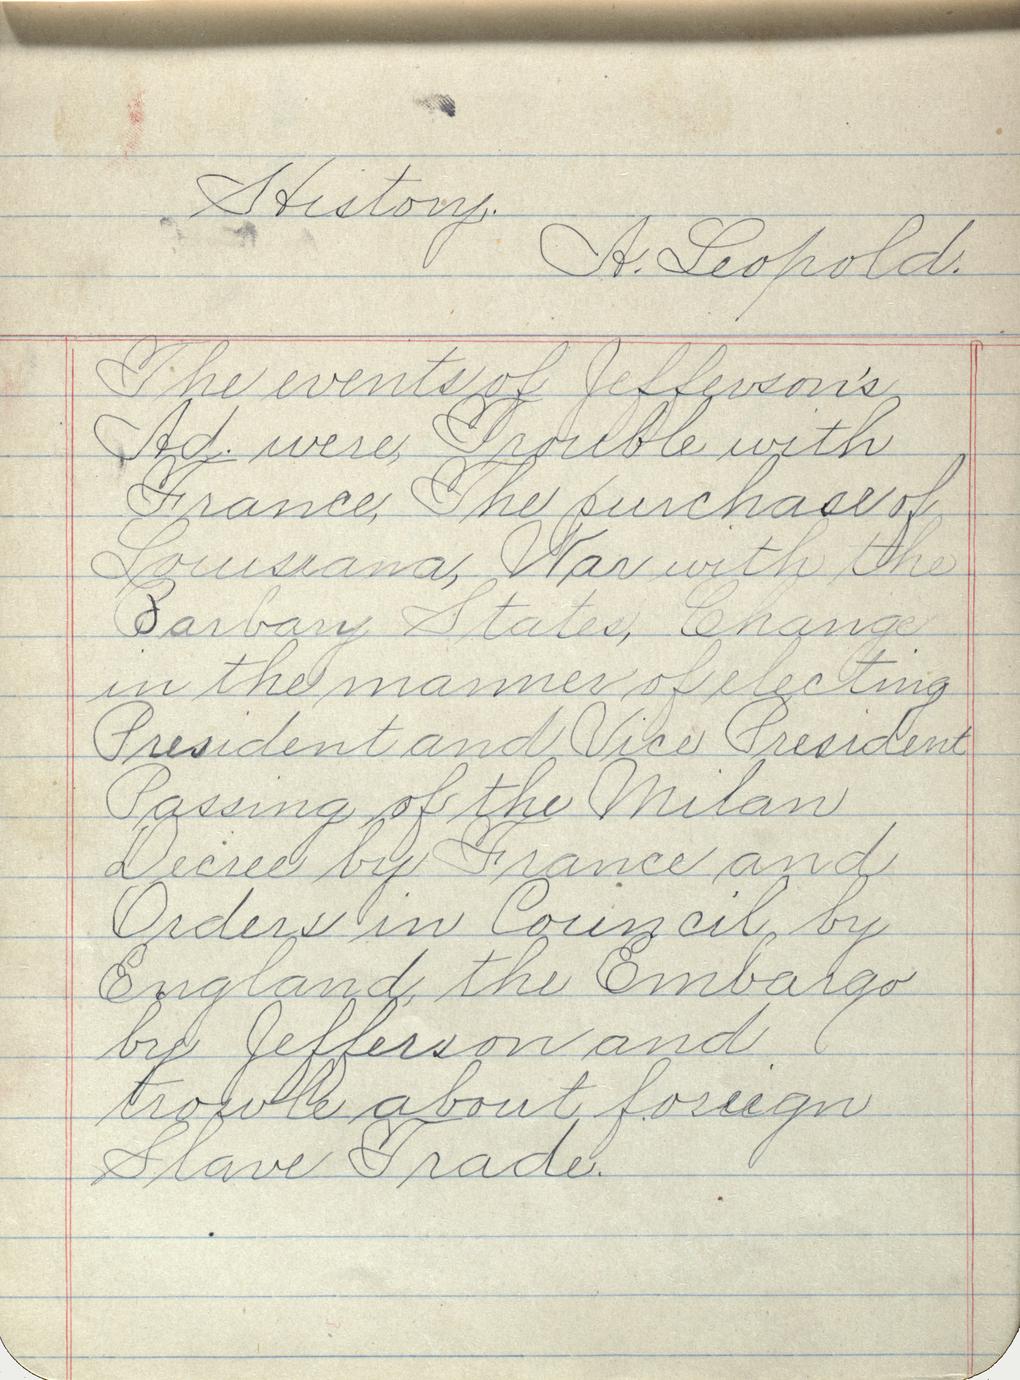 History.
A. Leopold.
The events of Jefferson's
Ad. were, Trouble with
France, The purchase of
Louisiana, War with the
Barbary States, Change
in the manner of electing
President and Vice President
Passing of the Milan
Decree by France and
Orders in Council, by
England, the Embargo
by Jefferson and
trouble about foreign
Slave Trade.